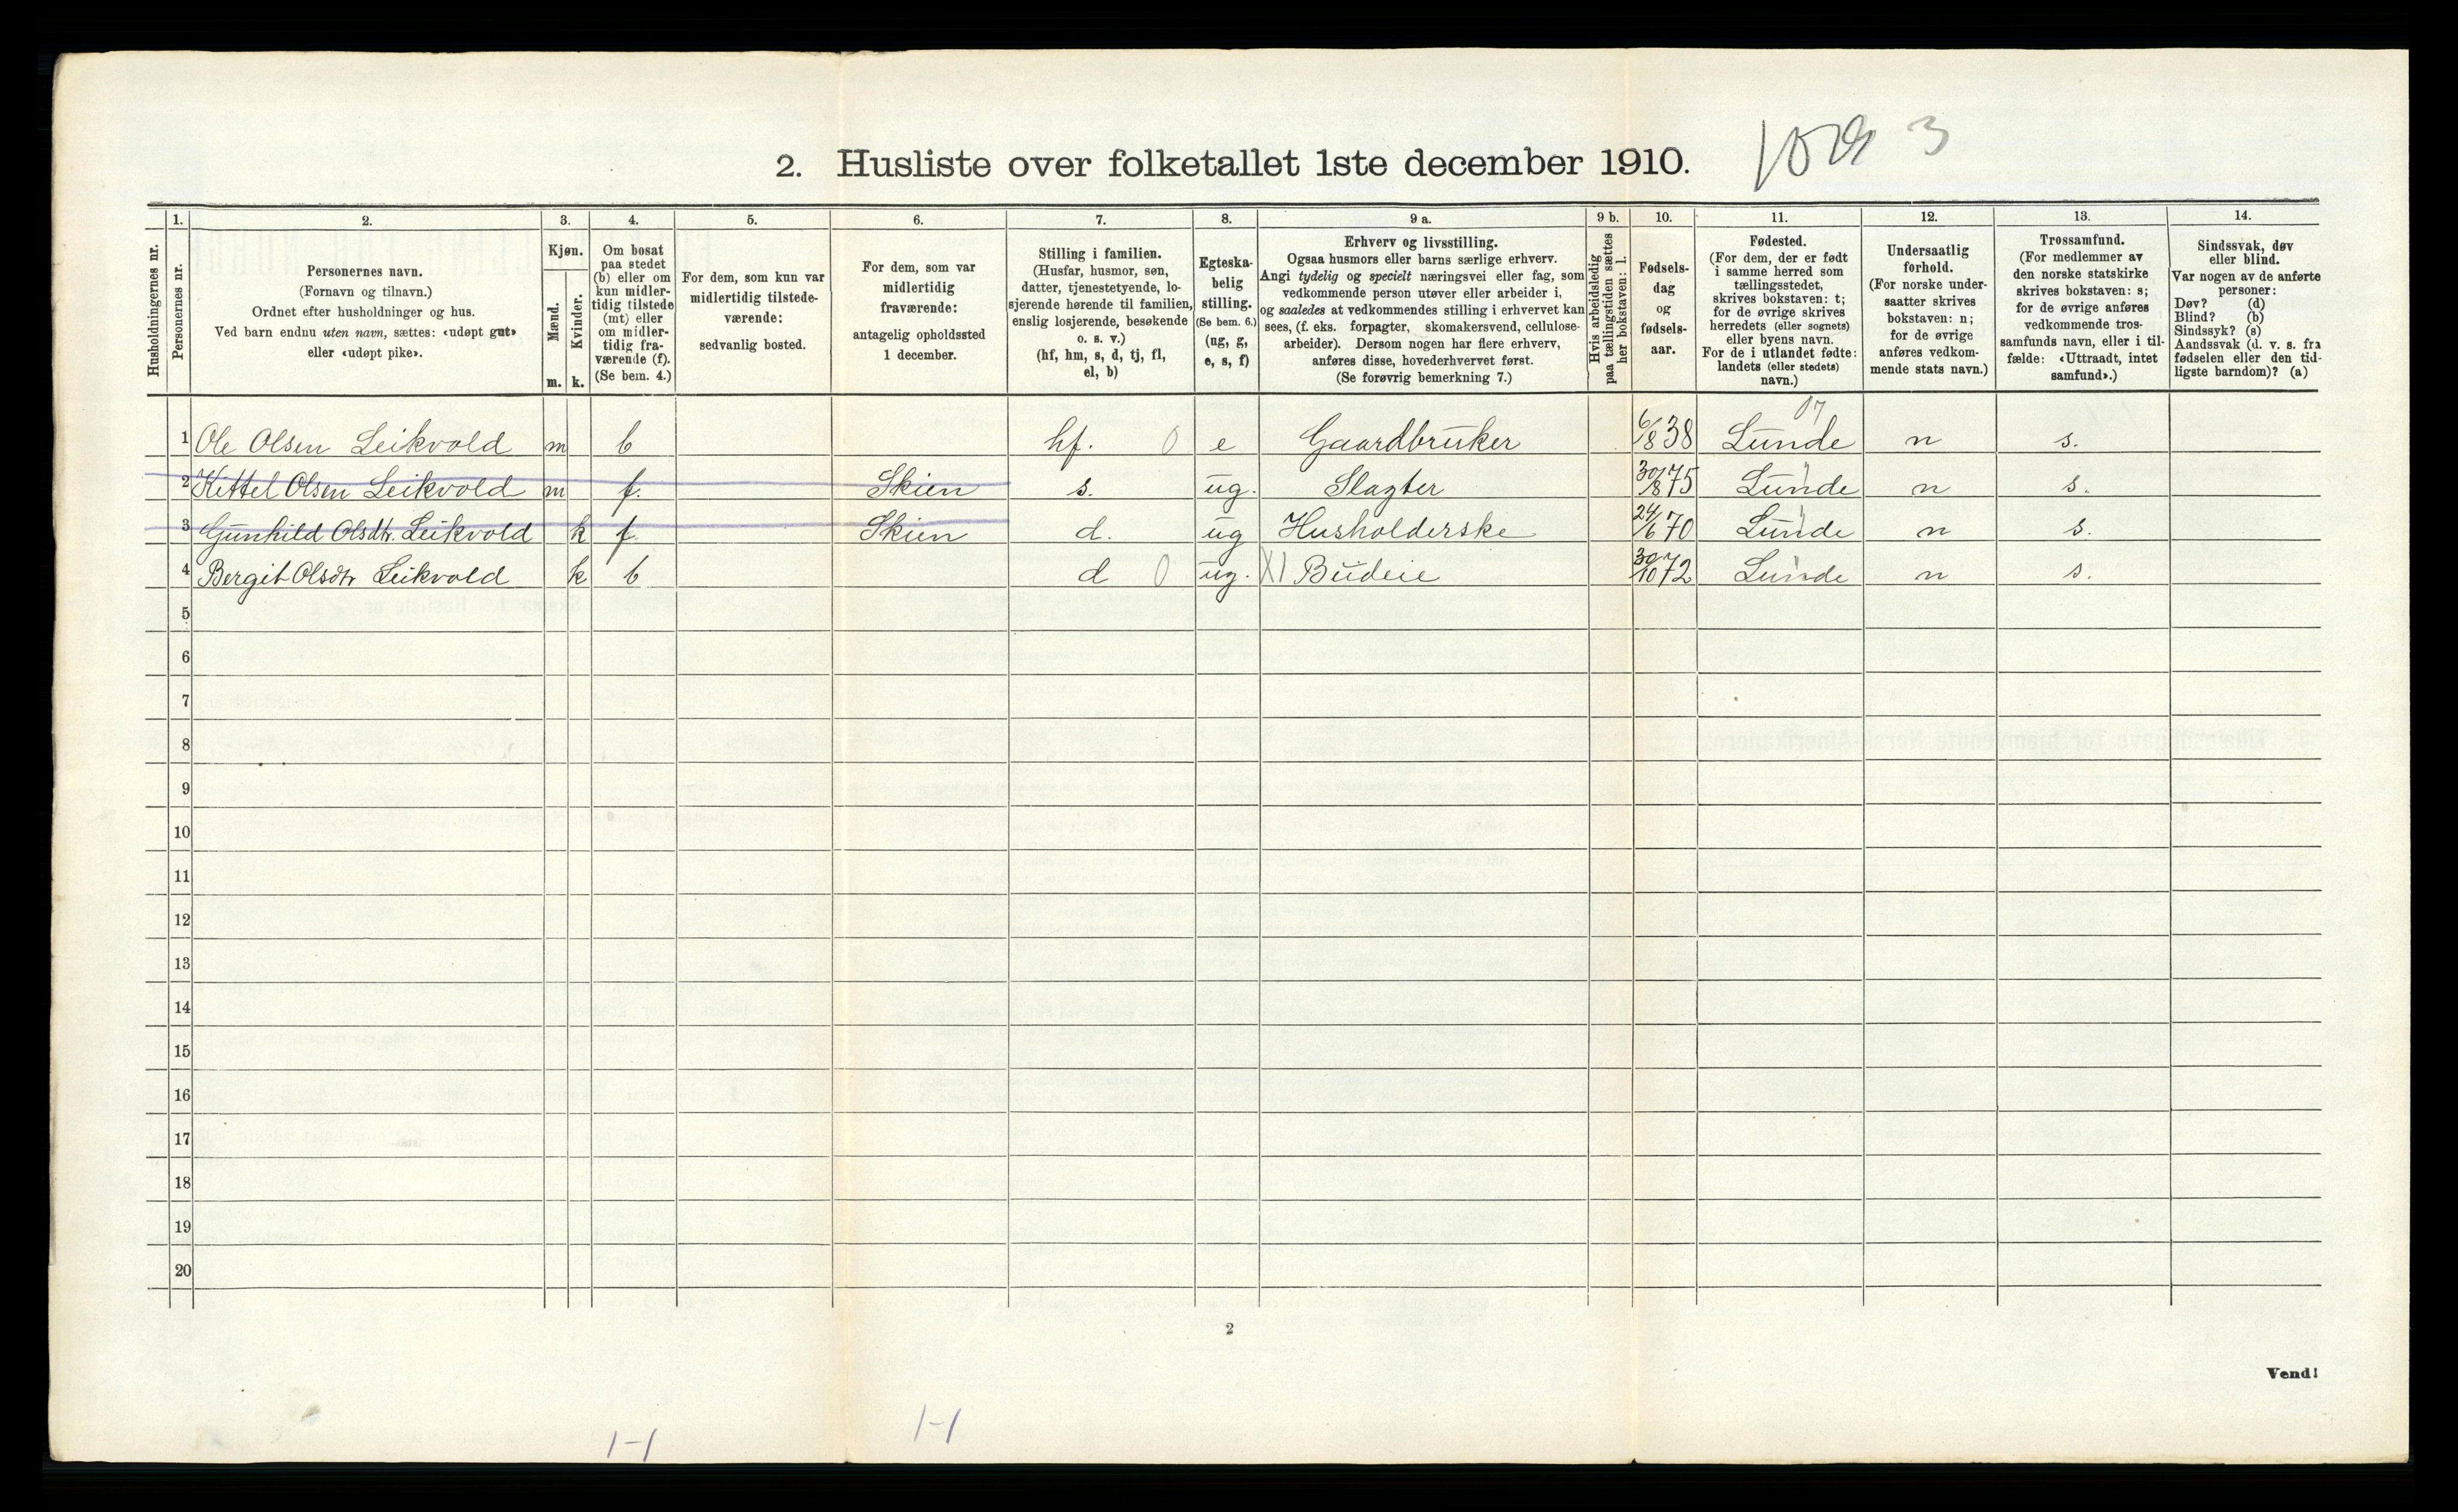 2. Husliste over folketallet 1ste december 1910. 3
Husholdningernes nr.
1.
Personernes nr.
2.
Personernes navn.
(Fornavn og tilnavn.)
Ordnet efter husholdninger og hus.
Ved barn endnu uten navn, sættes: «udøpt gut»
eller «udøpt pike».
3.
Kjøn.
Mænd.
Kvinder.
m. k.
4.
Om bosat
paa stedet
(b) eller om
kun midler-
tidig tilstede
(mt) eller
om midler-
tidig fra-
værende (f).
(Se bem. 4.)
5.
For dem, som kun var
midlertidig tilstede-
værende:
sedvanlig bosted.
6.
For dem, som var
midlertidig
fraværende:
antagelig opholdssted
1 december.
7.
Stilling i familien.
(Husfar, husmor, søn,
datter, tjenestetyende, lo-
sjerende hørende til familien,
enslig losjerende, besøkende
o. s. v.)
(hf, hm, s, d, tj, fl,
el, b)
8.
Egteska-
belig
stilling.
(Se bem. 6.)
(ug, g,
e, s, f)
9 a.
Erhverv og livsstilling.
Ogsaa husmors eller barns særlige erhverv.
Angi tydelig og specielt næringsvei eller fag, som
vedkommende person utøver eller arbeider i,
og saaledes at vedkommendes stilling i erhvervet kan
sees, (f. eks. forpagter, skomakersvend, cellulose-
arbeider). Dersom nogen har flere erhverv,
anføres disse, hovederhvervet først.
(Se forøvrig bemerkning 7.)
9 b.
Hvis arbeidsledig
paa tællingstiden sættes
her bokstaven: l.
10.
Fødsels-
dag
og
fødsels-
aar.
11.
Fødested.
(For dem, der er født
i samme herred som
tællingsstedet,
skrives bokstaven: t;
for de øvrige skrives
herredets (eller sognets)
eller byens navn.
For de i utlandet fødte:
landets (eller stedets)
navn.)
12.
Undersaatlig
forhold.
(For norske under-
saatter skrives
bokstaven: n;
for de øvrige
anføres vedkom-
mende stats navn.)
13.
Trossamfund.
(For medlemmer av
den norske statskirke
skrives bokstaven: s;
for de øvrige anføres
vedkommende tros-
samfunds navn, eller i til-
fælde: «Uttraadt, intet
samfund».)
14.
Sindssvak, døv
eller blind.
Var nogen av de anførte
personer:
Døv? (d)
Blind? (b)
Sindssyk? (s)
Aandssvak (d. v. s. fra
fødselen eller den tid-
ligste barndom)? (a)
07
1 Ole Olsen Leikvold m b hf. 0 e Gaardbruker 6/8 38 Lunde n s.
2 Kittel Olsen Leikvold m f. Skien s. ug. Slagter 30/8 75 Lunde n s.
3 Gunhild Olsdtr. Leikvold k f. Skien d. ug Husholderske 24/6 70 Lunde n s.
4 Bergit Olsdtr Leikvold k b d 0 ug. XI Budeie 30/10 72 Lunde n s.
5
6
7
8
9
10
11
12
13
14
15
16
17
18
19
20
2
Vend!
1-1
1-1